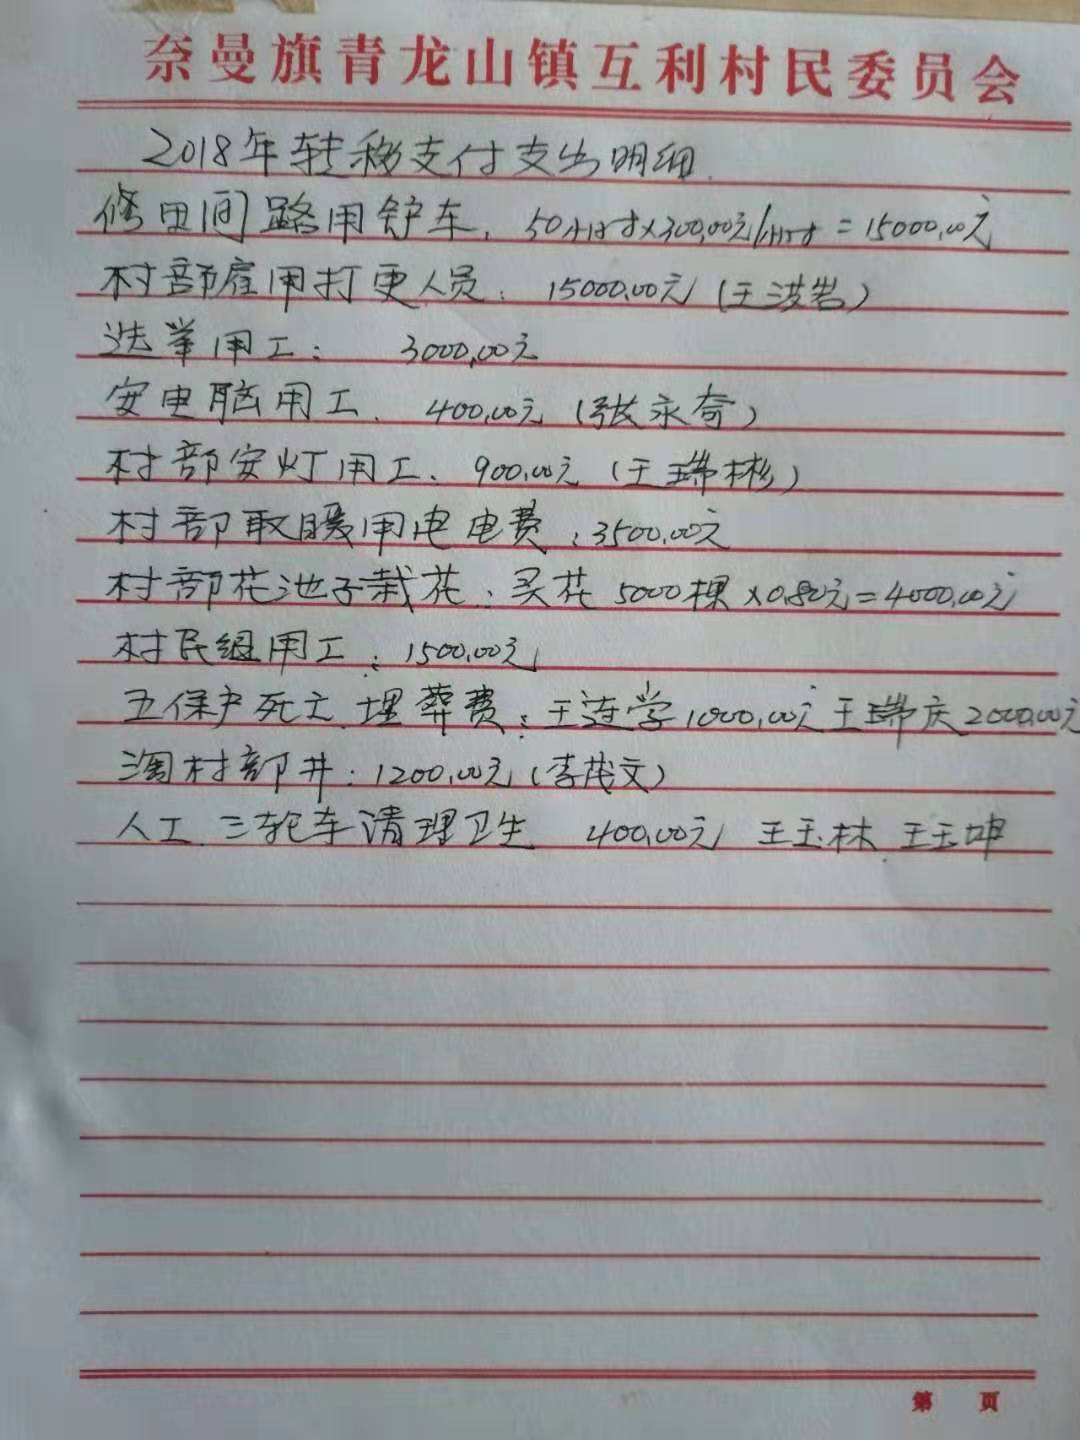 奈曼旗青龙山镇互利村民委员会
2018年转移支付支出明细.
修田间路用铲车. 50小时×300.00元/小时=15000.00元
村部雇用打更人员: 15000.00元(王波岩)
选举用工: 3000.00元
安电脑用工. 400.00元(张永奇)
村部安灯用工. 900.00元(王瑞彬)
村部取暖用电电费:3500.00元
村部花池子栽花:买花5000棵×0.80元=4000.00元
村民组用工:1500.00元
五保户死亡.埋葬费:王连学1000.00元王瑞庆2000.00元
淘村部井:1200.00元(李茂文)
人工.三轮车清理卫生 400.00元 王玉林.王玉坤
第 页